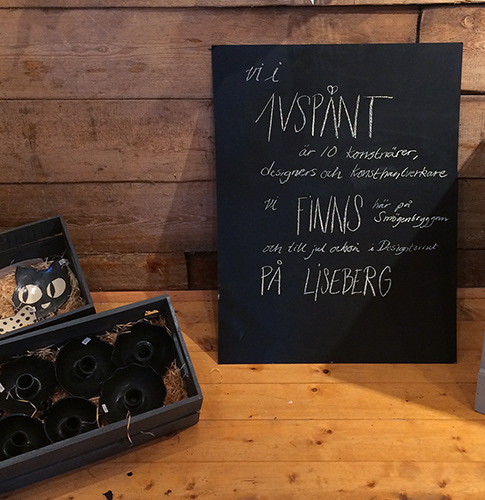 Vi i
AVSPÅNT
är 10 konstnärer,
designers och konsthantverkare
Vi FINNS här på
Smögenbryggan
och till jul också i Designtorget
PÅ LISEBERG